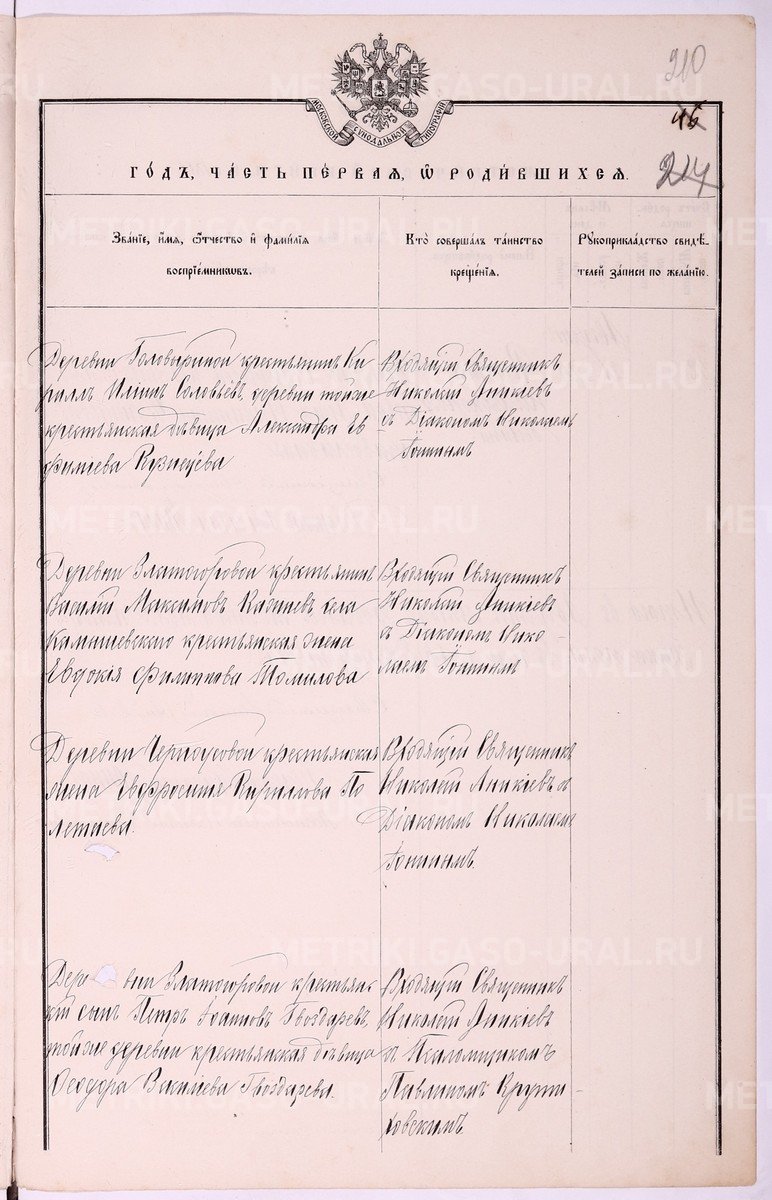 210
46
214
МОСКОВСКОЙ СѴНОДАЛЬНОЙ ТИПОГРАФІИ
ГО́ДЪ, ЧА́СТЬ ПЕ́РВАЯ, Ѽ РОДИ́ВШИХСЯ.
Зва́нїе, и҆́мя, ѻ҆́тчество и҆ фами́лїя
воспрїе́мникѡвъ.
Кто̀ соверша́лъ та́инство
креще́нїя.
Рꙋкоприкла́дство свидѣ́-
телей за́писи по жела́нїю.
Деревни Головыриной крестьянинъ Ки
риллъ Илiинъ Соловьевъ, деревни тойже
крестьянская дѣвица Александра Ев
фимiева Кузнецёва
Входящiй Священникъ
Николай Аникiевъ
съ Дiакономъ Николаемъ
Тонинымъ
Деревни Златогоровой крестьянинъ
Василiй Максимовъ села
Камышевскаго крестьянская жена
Евдокiя Филиппова Томилова
Входящiй Священникъ
Николай Аникiевъ
съ Дiакономъ Нико-
лаемъ Тонинымъ
Деревни Черноусовой крестьянская
жена Евфросинiя Кириллова По
летаева.
Входящiй Священникъ
Николай Аникiевъ съ
Дiакономъ Николаемъ
Тонинымъ.
Дере вни Златогоровой крестьянс
кiй сынъ Петръ Iоанновъ Гвоздаревъ,
тойже деревни крестьянская дѣвица
Ѳеодора Василiева Гвоздарева.
Входящiй Священникъ
Николай Аникiевъ
съ Псаломщикомъ
Павлиномъ Крути
ховскимъ
METRIKI.GASO-URAL.RU